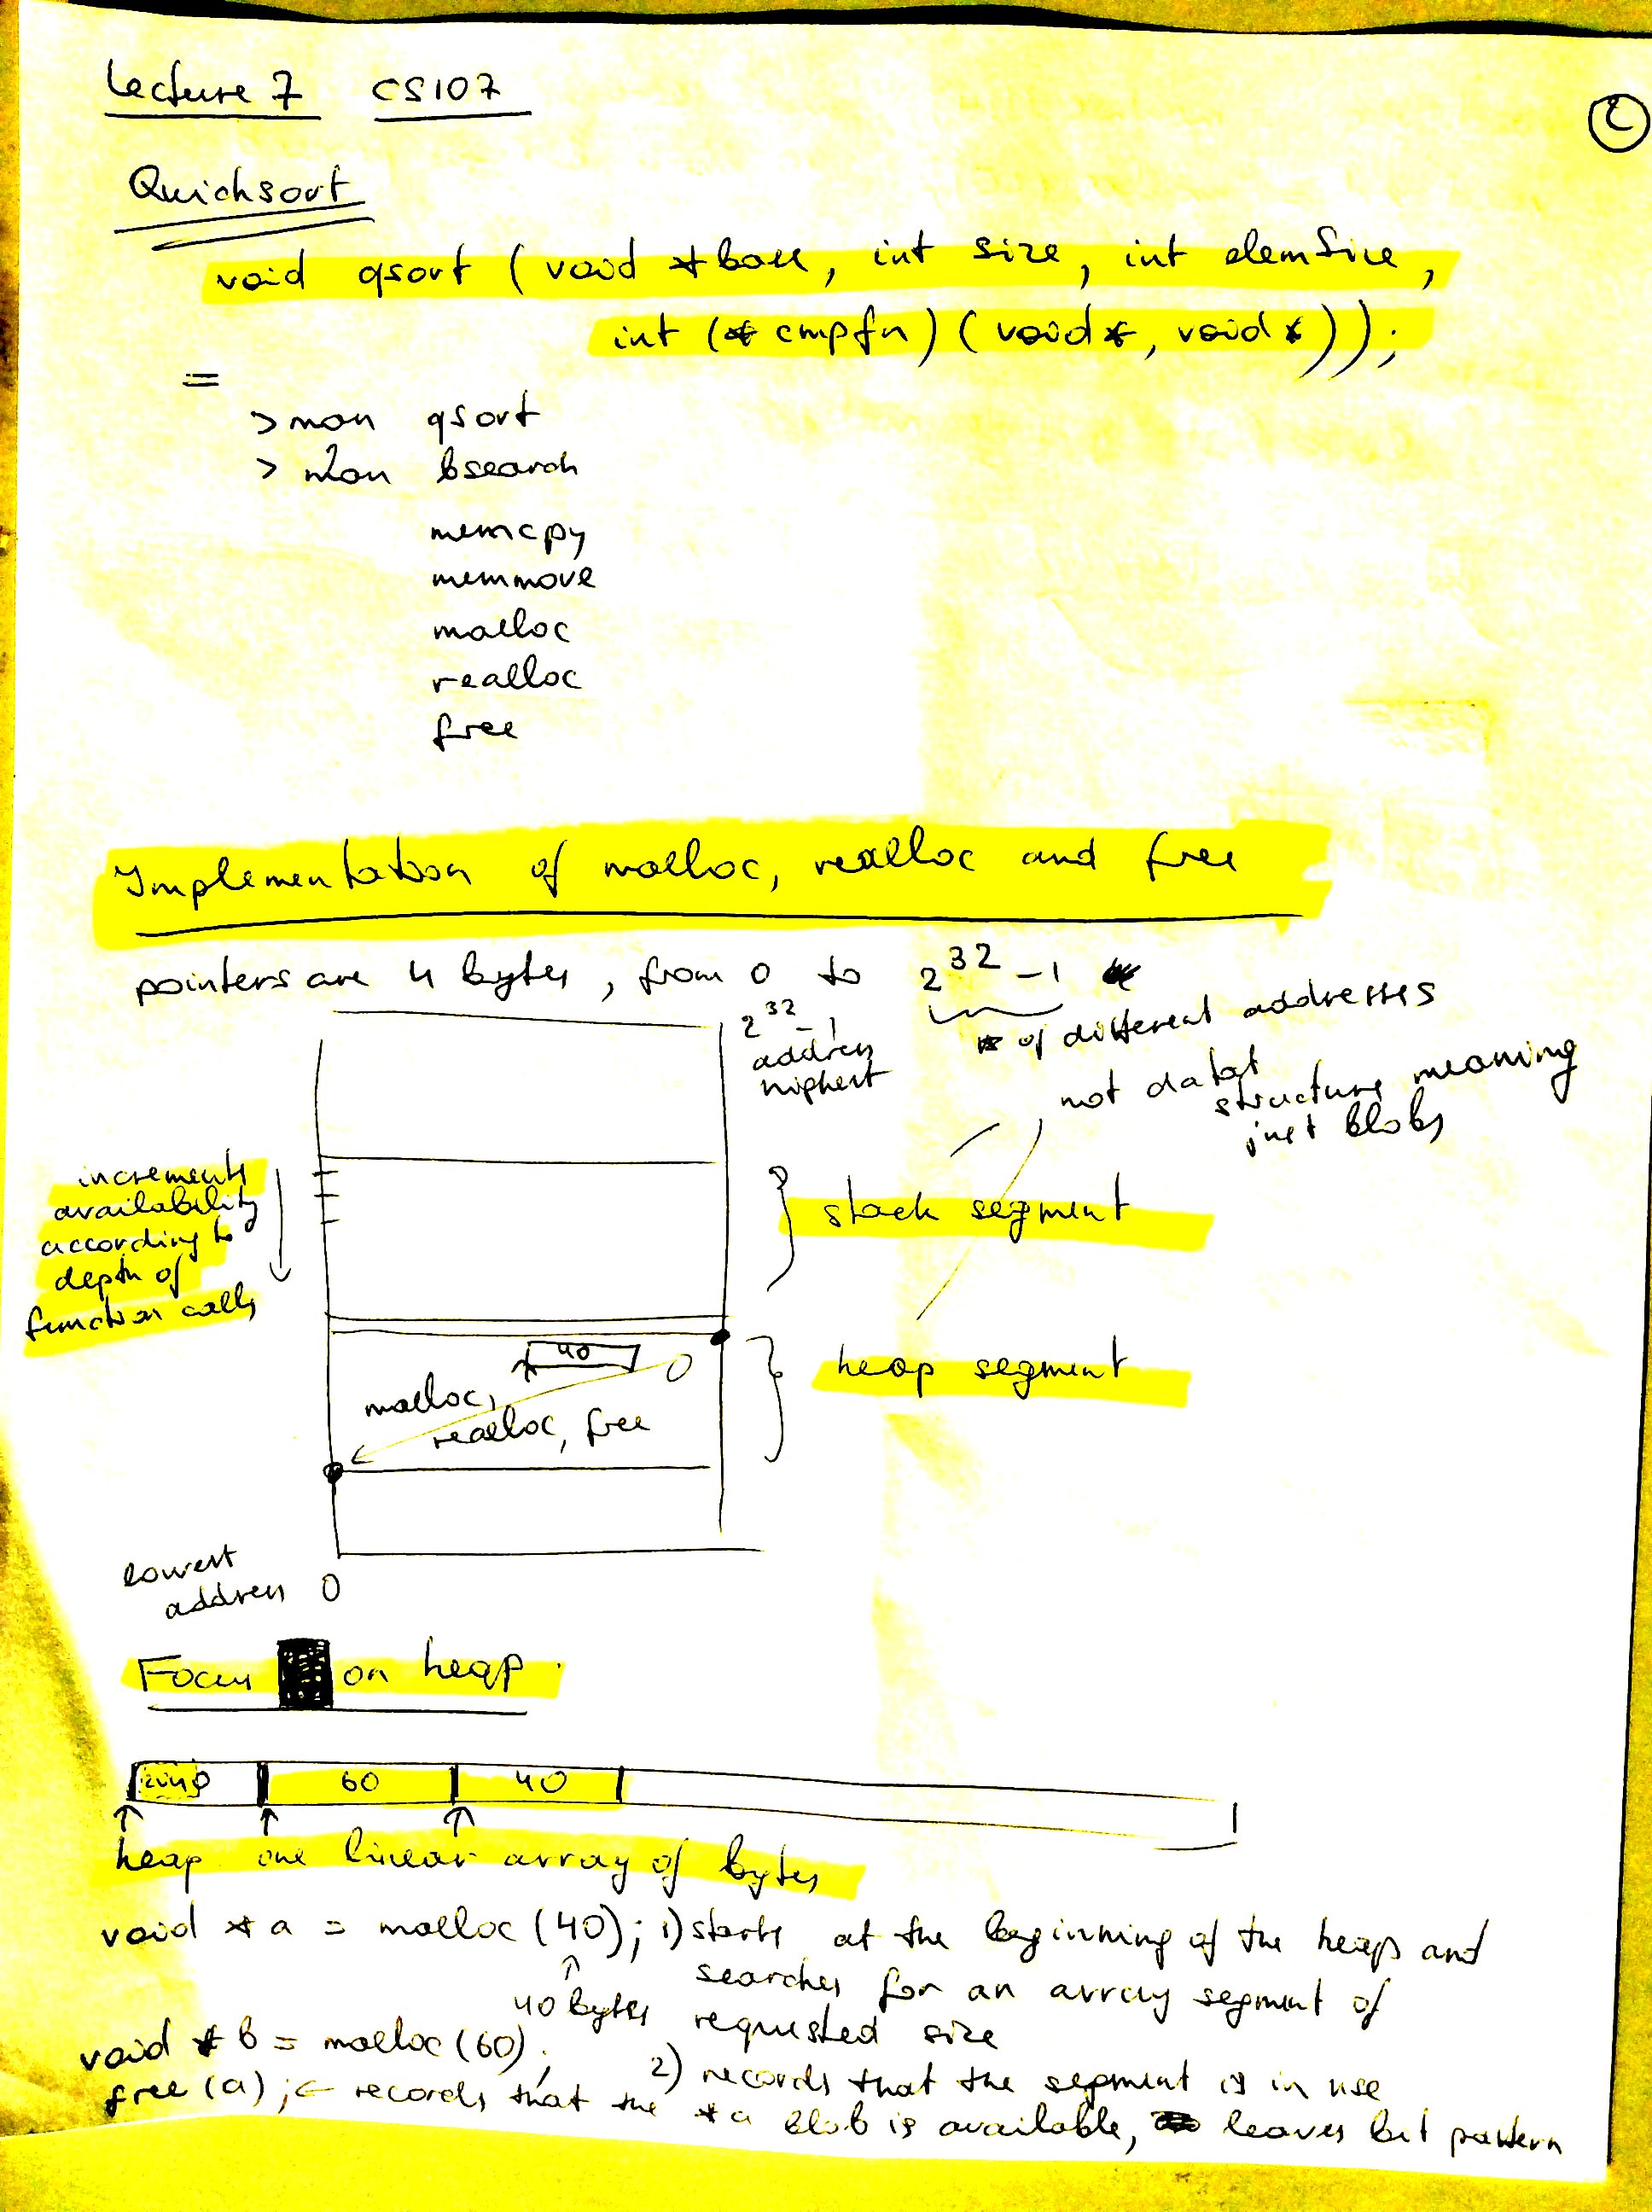 Lecture 7 CS107
Quicksort
void qsort (void *base, int size, int elemSize,
int (* cmpfn) (void*, void*));
=
> man qsort
> man bsearch
memcpy
memmove
malloc
realloc
free
Implementation of malloc, realloc and free
pointers are 4 bytes, from 0 to 2^32 - 1
2^32 - 1
address
highest
# of different addresses
not data
structure meaning
just blobs
increments
availability
according to
depth of
function calls
stack segment
40
heap segment
malloc,
realloc, free
lowest
address 0
Focus on heap.
40 60 40
heap one linear array of bytes
void *a = malloc (40); 1) starts at the beginning of the heap and
searches for an array segment of
40 bytes requested size
void *b = malloc (60);
2) records that the segment is in use
free (a); ← records that the *a blob is available, leaves bit pattern